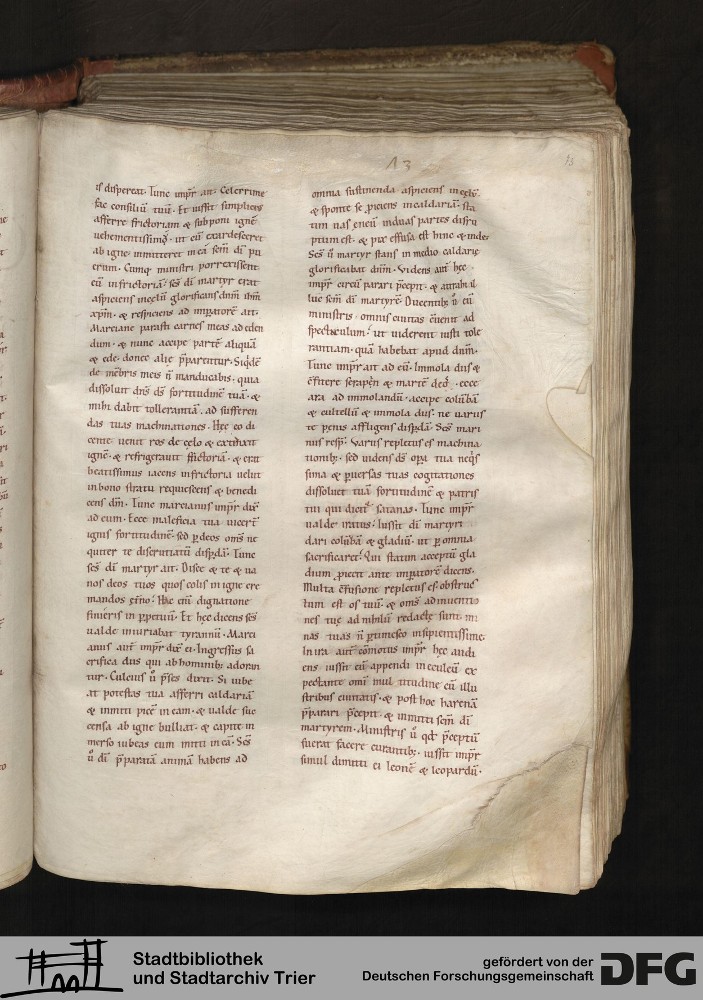 13
13
is dispereat. Tunc impr̄ ait. Celerrime
fac consiliū tuū. Et iussit simpliciū
afferre frictoriam & subponi ignē
uehementissimū. ut cū exardesceret
ab igne inmitteret in eā sc̄m dī pu
erum. Cumq; ministri porrexissent
eū in frictoriā. sc̄s dī martyr erat
aspiciens in cęlū glorificans dn̄m ihm̄
xp̄m. & respiciens ad impatorē ait.
Marciane parasti carnes meas ad eden
dum. & nunc accipe partē aliquā
& ede. donec alię p̄parentur. Siqdē
de mēbris meis n̄ manducabis. quia
dissoluit dn̄s ds̄ fortitudinē tuā. &
mihi dabit tollerantiā. ad sufferen
das tuas machinationes. Hęc eo di
cente uenit ros de cęlo & extinxit
ignē. & refrigerauit frictoriā. & erat
beatissimus iacens in frictoria uelut
in bono stratu requiescens & benedi
cens dm̄. Tunc marcianus impr̄ dix̄
ad eum. Ecce maleficia tua uicert̄
ignis fortitudinē. sed p deos om̄s ne
quiter te discrutiatū dispdā. Tunc
sc̄s dī martyr ait. Disce & te & ua
nos deos tuos quos colis in igne cre
mandos eterno. Hac enī dignatione
finieris in ppetuū. Et hęc dicens sc̄s
ualde iniuriabat tyrannū. Marci
anus aut̄ impr̄ dix̄ ei. Ingressus sa
crifica diis qui ab hominib; adoran
tur. Culcius ū p̄ses dixit. Si iube
at potestas tua afferri caldariā
& inmitti picē in eam. & ualde suc
censa ab igne bulliat. & capite in
merso iubeas eum mitti in eā. Sc̄s
ū dī p̄paratā animā habens ad
omnia sustinenda aspiciens in cęlū.
& sponte se piciens in caldariā. sta
tim uas eneū in duas partes disru
ptum est. & pix effusa est hinc & inde.
Sc̄s ū martyr stans in medio caldarię
glorificabat dn̄m. Videns aut̄ hęc
impr̄ circū parari p̄cepit. &
luc sc̄m dī martyrē. Ducentib; ū eū
ministris. omnis ciuitas cuenit ad
spectaculum. ut uiderent iusti tole
rantiam. quā habebat apud dn̄m.
Tunc impr̄ ait ad eū. Immola diis &
c̄fitere serapen & martē deos. ecce
ara ad immolandū. accipe colūbā
& cultellū & immola diis. ne uariis
te penis affligens dispdā. Sc̄s mari
nus resp. Variis repletus es machina
tionib;. sed uidens ds̄ opa tua neqs
sima & puersas tuas cogitationes
dissoluet tuā fortitudinē & patris
tui qui dicit̄ satanas. Tunc impr̄
ualde iratus. iussit dī martyri
dari colūbā & gladiū. ut p omnia
sacrificaret. Qui statim acceptū gla
dium piecit ante impatorē dicens.
Multa c̄fusione repletus es. obstruc
tum est os tuū. & om̄s adinuentio
nes tuę ad nihilū redactę sunt. mi
nas tuas n̄ ptimesco insipientissime.
In ira aut̄ cōmotus impr̄ hęc audi
ens iussit eū appendi in eculeū ex
pectante omī multitudine cū illu
stribus ciuitatis. & post hoc harenā
p̄parari p̄cepit. & inmitti sc̄m dī
martyrem. Ministris ū qd p̄ceptū
fuerat facere curantib;. iussit impr̄
simul dimitti ei leonē & leopardū.
Stadtbibliothek
und Stadtarchiv Trier
gefördert von der
Deutschen Forschungsgemeinschaft
DFG